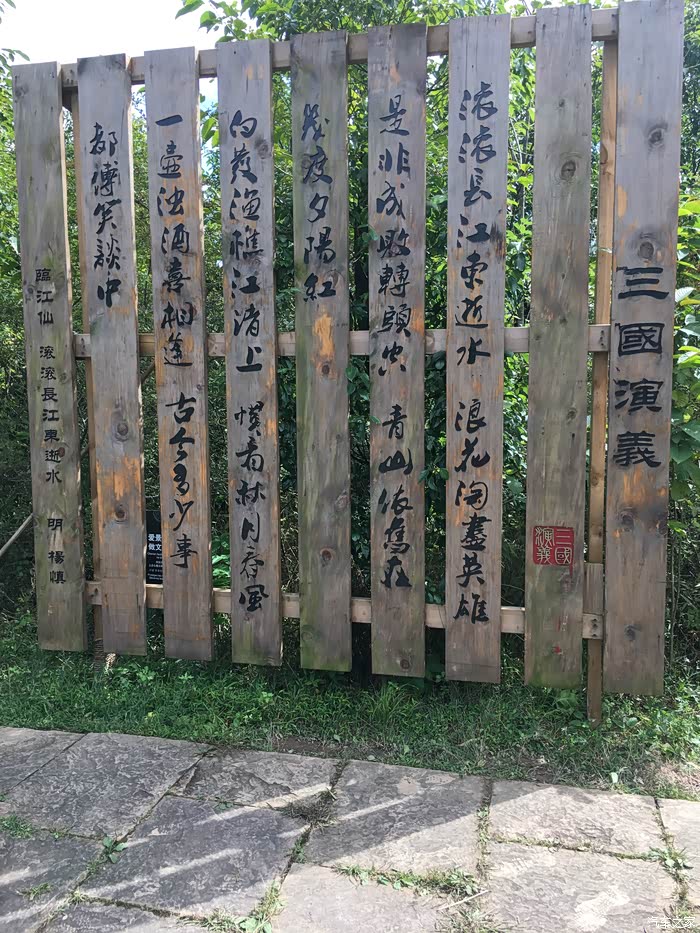 三國演義
三國演義
滚滚長江東逝水 浪花淘盡英雄
是非成敗轉頭空 青山依舊在
幾度夕陽紅
白髮漁樵江渚上 慣看秋月春風
一壺浊酒喜相逢 古今多少事
都傅笑談中
臨江仙 滾滾長江東逝水 明 楊慎
爱景
做文
汽车之家